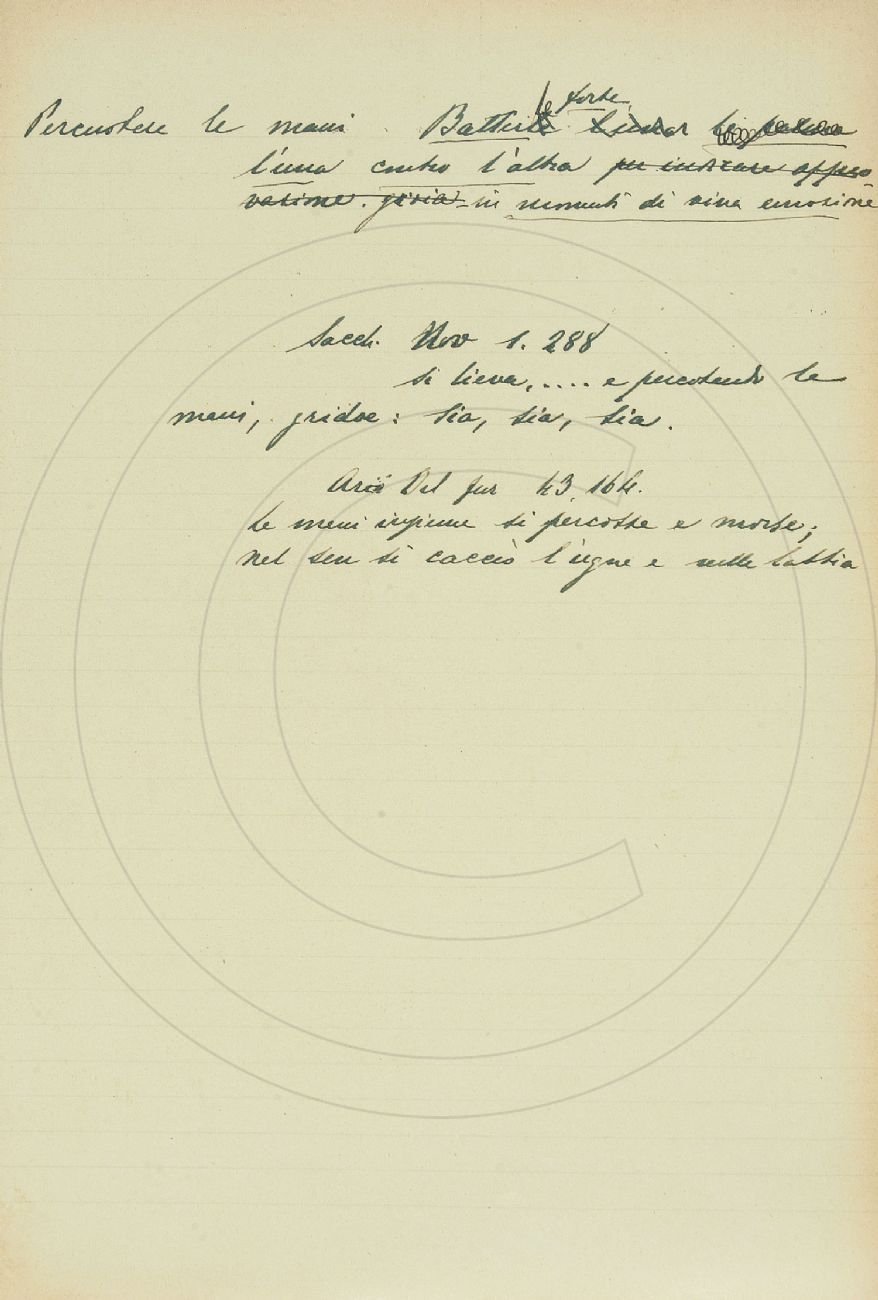 le forte
Percuotere le mani Batterle
l'una contro l'altra per indicare appro-
vazione. gioia - in momenti di viva emozione
Sacch. Nov 1. 288
si lieva, .... e percotendo le
mani, gridoe: Sia, sia, sia.
Ario Orl fur 43 164.
Le mani insieme si percosse e morse;
nel sen si cacciò l'ugne e nelle labbia